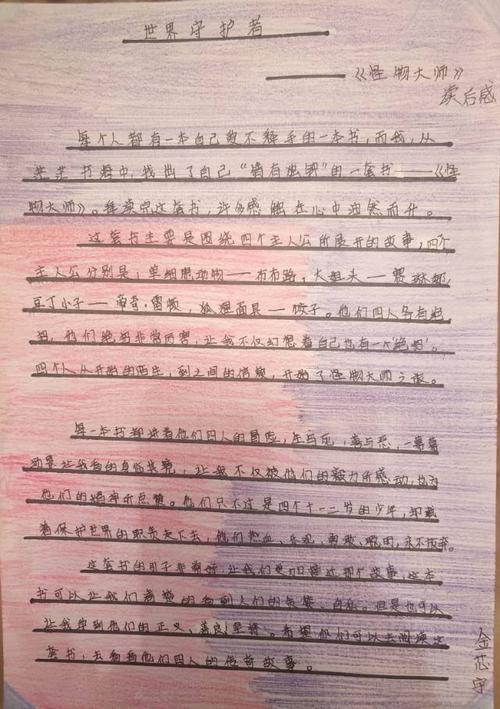 世界守护者
——《怪物大师》
读后感
每个人都有一本自己爱不释手的一本书，而我，从
茫茫书海中，找出了自己“情有独钟”的一套书——《怪
物大师》。每读完这套书，许多感触在心中油然而升。
这套书主要是围绕四个主人公所展开的故事，四个
主人公分别是：单细胞动物——布布路，大姐头——赛琳娜，
豆丁小子——帝奇·雷顿，狐狸面具——饺子。他们四人各有绝
招，他们绝招非常厉害，让我不仅幻想着自己也有一个“绝招”。
四个人从开始的陌生，到之间的信赖，开始了怪物大师之旅。
每一本书都讲着他们四人的冒险，生与死，善与恶，一幕幕
动容让我看的身临其境，让我不仅被他们的毅力所感动，也为
他们的精神所点赞。他们只不过是四个十一二岁的少年，却戴
着保护世界的职责走下去，他们热血、乐观、勇敢、聪明，永不放弃。
这套书的引子非常好，让我们更加接近那个故事，这本
书可以让我们清楚的看到人们的贪婪、自私。但是也可以
让我学到他们的正义、善良、坚持。希望你们可以去阅读这
套书，去看看他们四人的传奇故事。
金芯宇